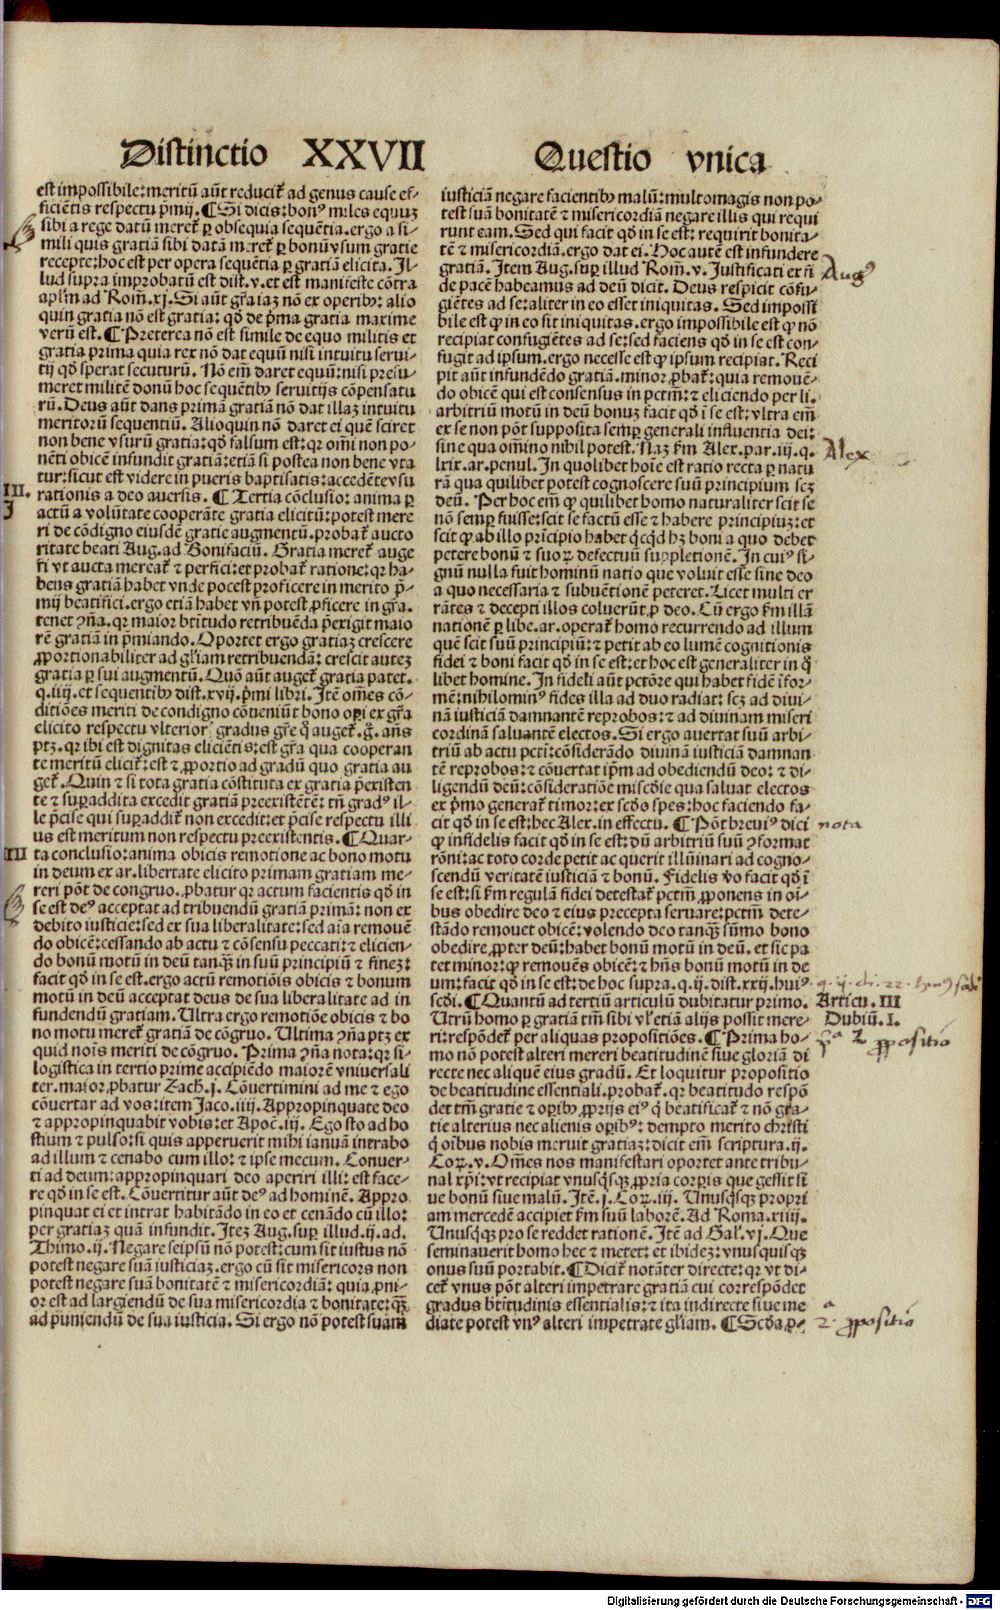 Distinctio XXVII Questio vnica
est impossibile: meritū aūt reducit᷑ ad genus cause ef-
ficiētis respectu p̄mij. ¶Si dicis: bonꝰ miles equuꝫ
sibi a rege datū meret᷑ ꝑ obsequia sequētia. ergo a si-
mili quis gratiā sibi datā meret᷑ ꝑ bonū vsum gratie
recepte: hoc est per opera sequētia ꝑ gratiā elicita. Il-
lud supra improbatū est dist. v. et est manifeste cōtra
apl'm ad Rom̄. xj. Si aūt gr̄a iaꝫ nō ex operibꝰ: alio
quin gratia nō est gratia: qd̓ de p̄ma gratia maxime
verū est. ¶Preterea nō est simile de equo militis et
gratia prima quia rex nō dat equū nisi intuitu serui-
tij qd̓ sperat secuturū. Nō em̄ daret equū: nisi presu-
meret militē donū hoc sequētibꝰ seruitijs cōpensatu
rū. Deus aūt dans primā gratiā nō dat illaꝫ intuitu
meritorū sequentiū. Alioquin nō daret ei quē sciret
non bene vsurū gratia: qd̓ falsum est: qꝛ om̄i non po-
nēti obicē infundit gratiā: etiā si postea non bene vta
tur: sicut est videre in pueris baptisatis: accedēte vsu
III. rationis a deo auersis. ¶Tertia cōclusio: anima ꝑ
J actū a volūtate cooperāte gratia elicitū: potest mere
ri de cōdigno eiusdē gratie augmentū. probat᷑ aucto
ritate beati Aug. ad Bonifaciū. Gratia meret᷑ auge
ri vt aucta mereat᷑ ⁊ perfici: et probat᷑ ratione: qꝛ ha-
bens gratiā habet vnde pocest proficere in merito p̄-
mij beatifici. ergo etiā habet vn̄ potest ꝓficere in gr̄a.
tenet ꝯn̄a. qꝛ maior btītudo retribuēda p̄exigit maio
rē gratiā in p̄miando. Oportet ergo gratiaꝫ crescere
ꝓportionabiliter ad gl'iam retribuendā: crescit auteꝫ
gratia ꝑ sui augmentū. Quō aūt auget᷑ gratia patet.
q. iiij. et sequentibꝰ dist. xvij. p̄mi libri. Itē om̄es cō-
ditiōes meriti de condigno cōueniūt bono oꝑi ex gr̄a
elicito respectu vlterior̄ gradus gr̄e q̄ auget᷑. g̊. an̄s
ptꝫ. qꝛ ibi est dignitas eliciētis: est gr̄a qua cooperan
te meritū elicit᷑: est ⁊ ꝓportio ad gradū quo gratia au
get᷑. Quin ⁊ si tota gratia cōstituta ex gratia p̄existen
te ⁊ suꝑaddita excedit gratiā preexistētē: tn̄ gradꝰ il-
le p̄cise qui suꝑaddit᷑ non excedit: et p̄cise respectu illi
us est meritum non respectu preexistentis. ¶Quar-
IIII ta conclusio: anima obicis remotione ac bono motu
in deum ex ar. libertate elicito primam gratiam me-
reri pōt de congruo. ꝓbatur qꝛ actum facientis qd̓ in
se est deꝰ acceptat ad tribuendū gratiā primā: non ex
debito iusticie: sed ex sua liberalitate: sed aīa remouē
do obicē: cessando ab actu ⁊ cōsensu peccati: ⁊ elicien-
do bonū motū in deū tanqꝫ in suū principiū ⁊ fineꝫ:
facit qd̓ in se est. ergo actū remotiōis obicis ⁊ bonum
motū in deū acceptat deus de sua liberalitate ad in
fundendū gratiam. Ultra ergo remotiōe obicis ⁊ bo
no motu meret᷑ gratiā de cōgruo. Ultima ꝯn̄a ptꝫ ex
quid noīs meriti de cōgruo. Prima ꝯn̄a nota: qꝛ si-
logistica in tertio prime accipiēdo maiorē vniuersali
ter. maior ꝓbatur Zach. j. Cōuertimini ad me ⁊ ego
cōuertar ad vos: item Jaco. iiij. Appropinquate deo
⁊ appropinquabit vobis: et Apoc̄. iij. Ego sto ad ho
stium ⁊ pulso: si quis apperuerit mihi ianuā intrabo
ad illum ⁊ cenabo cum illo: ⁊ ipse mecum. Conuer-
ti ad deum: appropinquari deo aperiri illi: est face-
re qd̓ in se est. Cōuertitur aūt deꝰ ad hominē. Appro
pinquat ei et intrat habitādo in eo et cenādo cū illo:
per gratiaꝫ quā infundit. Iteꝫ Aug. suꝑ illud. ij. ad.
Thimo. ij. Negare seipsū nō potest: cum sit iustus nō
potest negare suā iusticiaꝫ. ergo cū sit misericors non
potest negare suā bonitatē ⁊ misericordiā: quia ꝓni-
or est ad largiendū de sua misericordia ⁊ bonitate: qꝫ
ad puniendū de sua iusticia. Si ergo nō potest suam
iusticiā negare facientibꝰ malū: multomagis non po-
test suā bonitatē ⁊ misericordiā negare illis qui requi
runt eam. Sed qui facit qd̓ in se est: requirit bonita-
tē ⁊ misericordiā. ergo dat ei. Hoc autē est infundere
gratiā. Item Aug. suꝑ illud Rom̄. v. Justificati ex fi Augꝰ
de pacē habeamus ad deū dicit. Deus respicit cōfu-
giētes ad se: aliter in eo esset iniquitas. Sed impossi
bile est ꝙ in eo sit iniquitas. ergo impossibile est ꝙ nō
recipiat confugiētes ad se: sed faciens qd̓ in se est con-
fugit ad ipsum. ergo necesse est ꝙ ipsum recipiat. Reci
pit aūt infundēdo gratiā. minor ꝓbat᷑: quia remouē-
do obicē qui est consensus in pctm̄: ⁊ eliciendo per li.
arbitriū motū in deū bonuꝫ facit qd̓ ī se est: vltra em̄
ex se non pōt supposita semꝑ generali influentia dei:
sine qua om̄ino nihil potest. Naꝫ km̄ Alex. par. iij. q. Alex
lxix. ar. penul. In quolibet hoīe est ratio recta ꝑ natu
rā qua quilibet potest cognoscere suū principium scꝫ
deū. Per hoc em̄ ꝙ quilibet homo naturaliter scit se
nō semꝑ fuisse: scit se factū esse ⁊ habere principiuꝫ: et
scit ꝙ ab illo prīcipio habet qͥcqͥd hꝫ boni a quo debet
petere bonū ⁊ suoꝝ defectuū suppletionē. In cuiꝰ si-
gnū nulla fuit hominū natio que voluit esse sine deo
a quo necessaria ⁊ subuētionē peteret. Licet multi er
rātes ⁊ decepti illos coluerūt ꝓ deo. Cū ergo km̄ illā
nationē ꝑ libe. ar. operat᷑ homo recurrendo ad illum
quē scit suū principiū: ⁊ petit ab eo lumē cognitionis
fidei ⁊ boni facit qd̓ in se est: et hoc est generaliter in q̄
libet homine. In fideli aūt pctōre qui habet fidē īfor-
mē: nihilominꝰ fides illa ad duo radiat: scꝫ ad diui-
nā iusticiā damnantē reprobos: ⁊ ad diuinam miseri
cordinā saluantē electos. Si ergo auertat suū arbi-
triū ab actu pctī: cōsiderādo diuinā iusticiā damnan
tē reprobos: ⁊ cōuertat ip̄m ad obediendū deo: ⁊ di-
ligendū deū: cōsideratiōe miscd̓ie qua saluat electos
ex p̄mo generat᷑ timor: ex scd̓o spes: hoc faciendo fa-
cit qd̓ in se est: hec Alex. in effectu. ¶Pōt breuiꝰ dici nota
ꝙ infidelis facit qd̓ in se est: dū arbitriū suū ꝯformat
rōni: ac toto corde petit ac querit illūinari ad cogno-
scendū veritatē iusticiā ⁊ bonū. Fidelis v̊o facit qd̓ ī
se est: si km̄ regulā fidei detestat᷑ pctm̄ ꝓponens in oī-
bus obedire deo ⁊ eius precepta seruare: pctm̄ dete-
stādo remouet obicē: volendo deo tanqꝫ sūmo bono
obedire ꝓpter deū: habet bonū motū in deū. et sic pa
tet minor: ꝙ remouēs obicē: ⁊ hn̄s bonū motū in de
um: facit qd̓ in se est: de hoc supra. q. ij. dist. xxij. huiꝰ
scd̓i. ¶Quantū ad tertiū articulū dubitatur primo. Articu. III
Utrū homo ꝑ gratiā tm̄ sibi vl' etiā alijs possit mere- Dubiū. I.
ri: respōdet᷑ per aliquas propositiōes. ¶Prima ho- pᵃ ꝓpositio
mo nō potest alteri mereri beatitudinē siue gloriā di
recte nec aliquē eius gradū. Et loquitur propositio
de beatitudine essentiali. probat᷑. qꝛ beatitudo respō
det tm̄ gratie ⁊ oꝑibꝰ ꝓprijs eiꝰ q̄ beatificat᷑ ⁊ nō gra-
tie alterius nec alienis oꝑibꝰ: dempto merito christi
q̄ oībus nobis meruit gratiaꝫ: dicit em̄ scriptura. ij.
Coꝝ. v. Om̄es nos manifestari oportet ante tribu-
nal xp̄i: vt recipiat vnusqͥsqꝫ ꝓpria corꝑis que gessit si
ue bonū siue malū. Itē. j. Coꝝ. iij. Unusqͥsqꝫ propri
am mercedē accipiet km̄ suū laborē. Ad Roma. xiiij.
Unusqͥsqꝫ pro se reddet rationē. Itē ad Gal'. vj. Que
seminauerit homo hec ⁊ metet: et ibideꝫ: vnusquisqꝫ
onus suū portabit. ¶Dicit᷑ notāter directe: qꝛ vt di-
cet᷑ vnus pōt alteri impetrare gratiā cui correspōdet
gradus btītudinis essentialis: ⁊ ita indirecte siue me
diate potest vnꝰ alteri impetrate gl'iam. ¶Scd̓a ꝓ- 2ᵃ. ꝓpositio
Digitalisierung gefördert durch die Deutsche Forschungsgemeinschaft - DFG